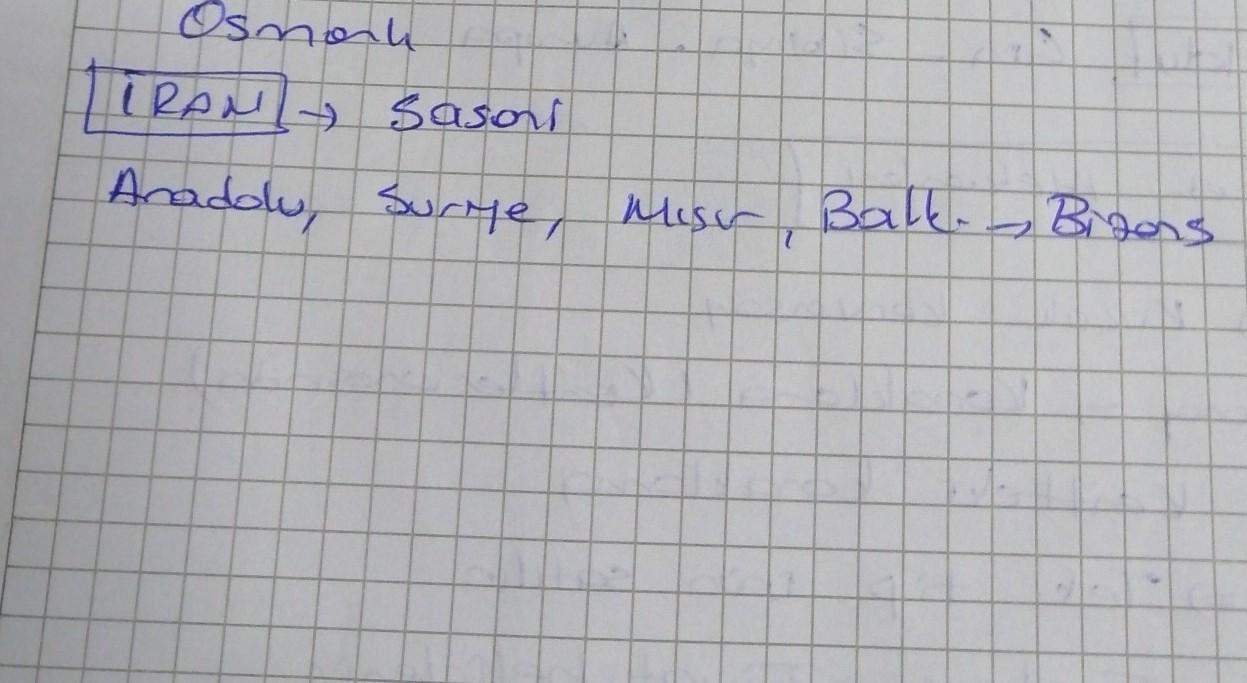 Osmanlı
İRAN → Sasani
Anadolu, Suriye, Mısır, Balk. → Bizans